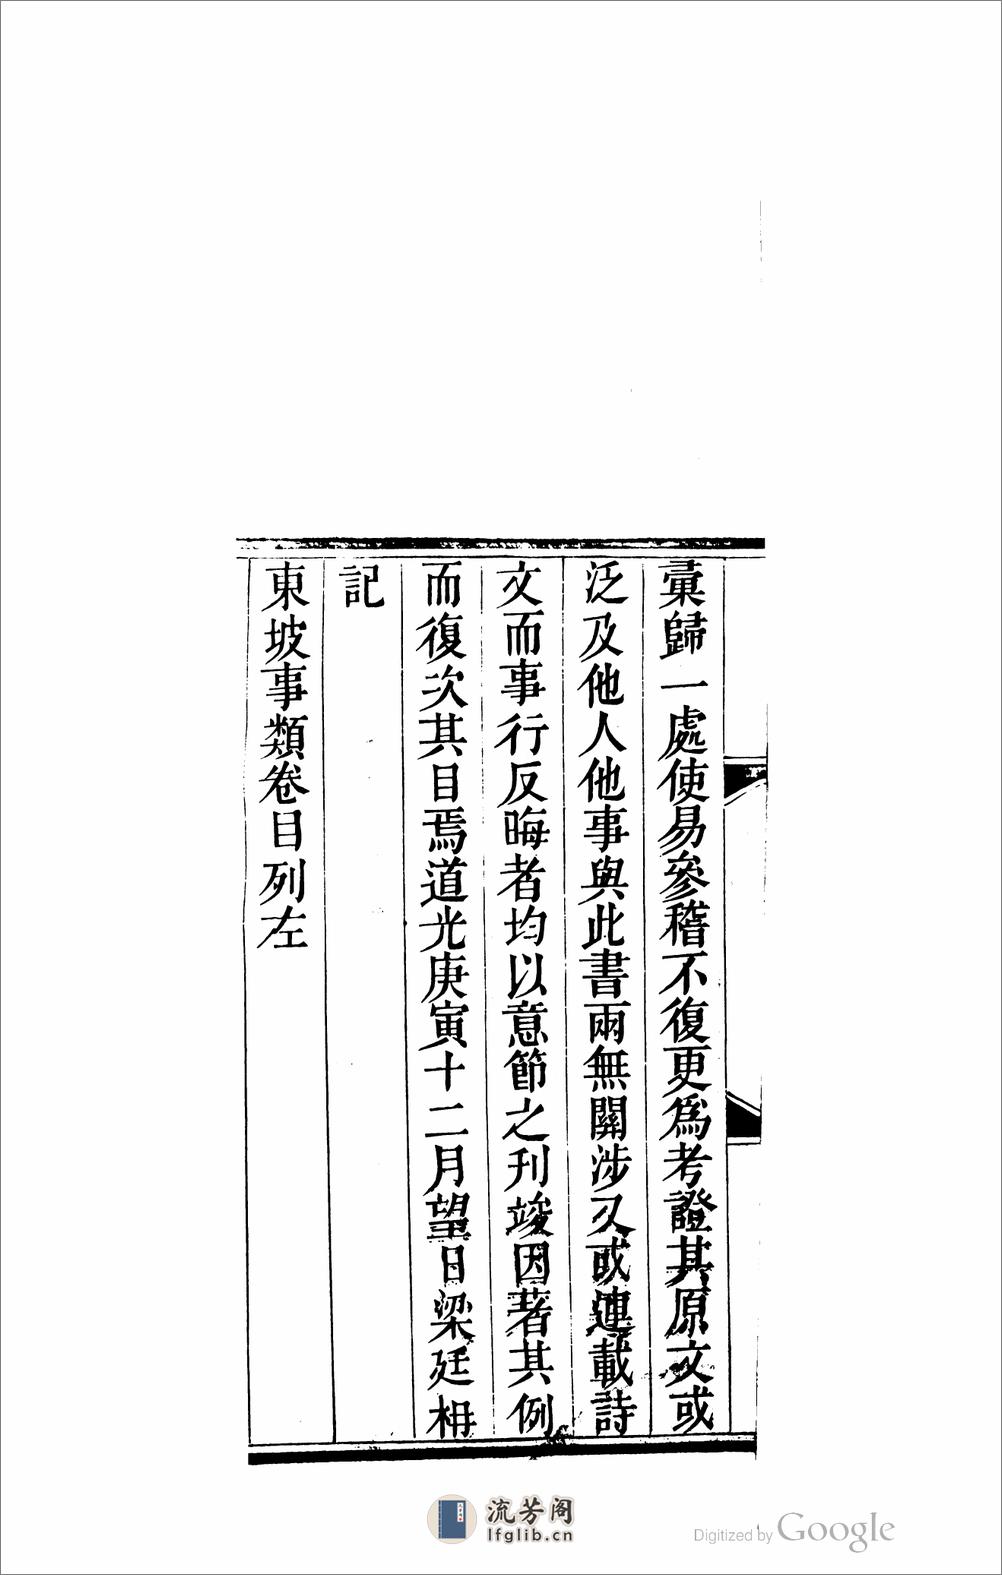 彙歸一處使易參稽不復更爲考證其原文或
泛及他人他事與此書兩無關涉又或連載詩
文而事行反晦者均以意節之刊竣因著其例
而復次其目焉道光庚寅十二月望日梁廷枏
記
東坡事類卷目列左
流芳阁
lfglib.cn
Digitized by Google